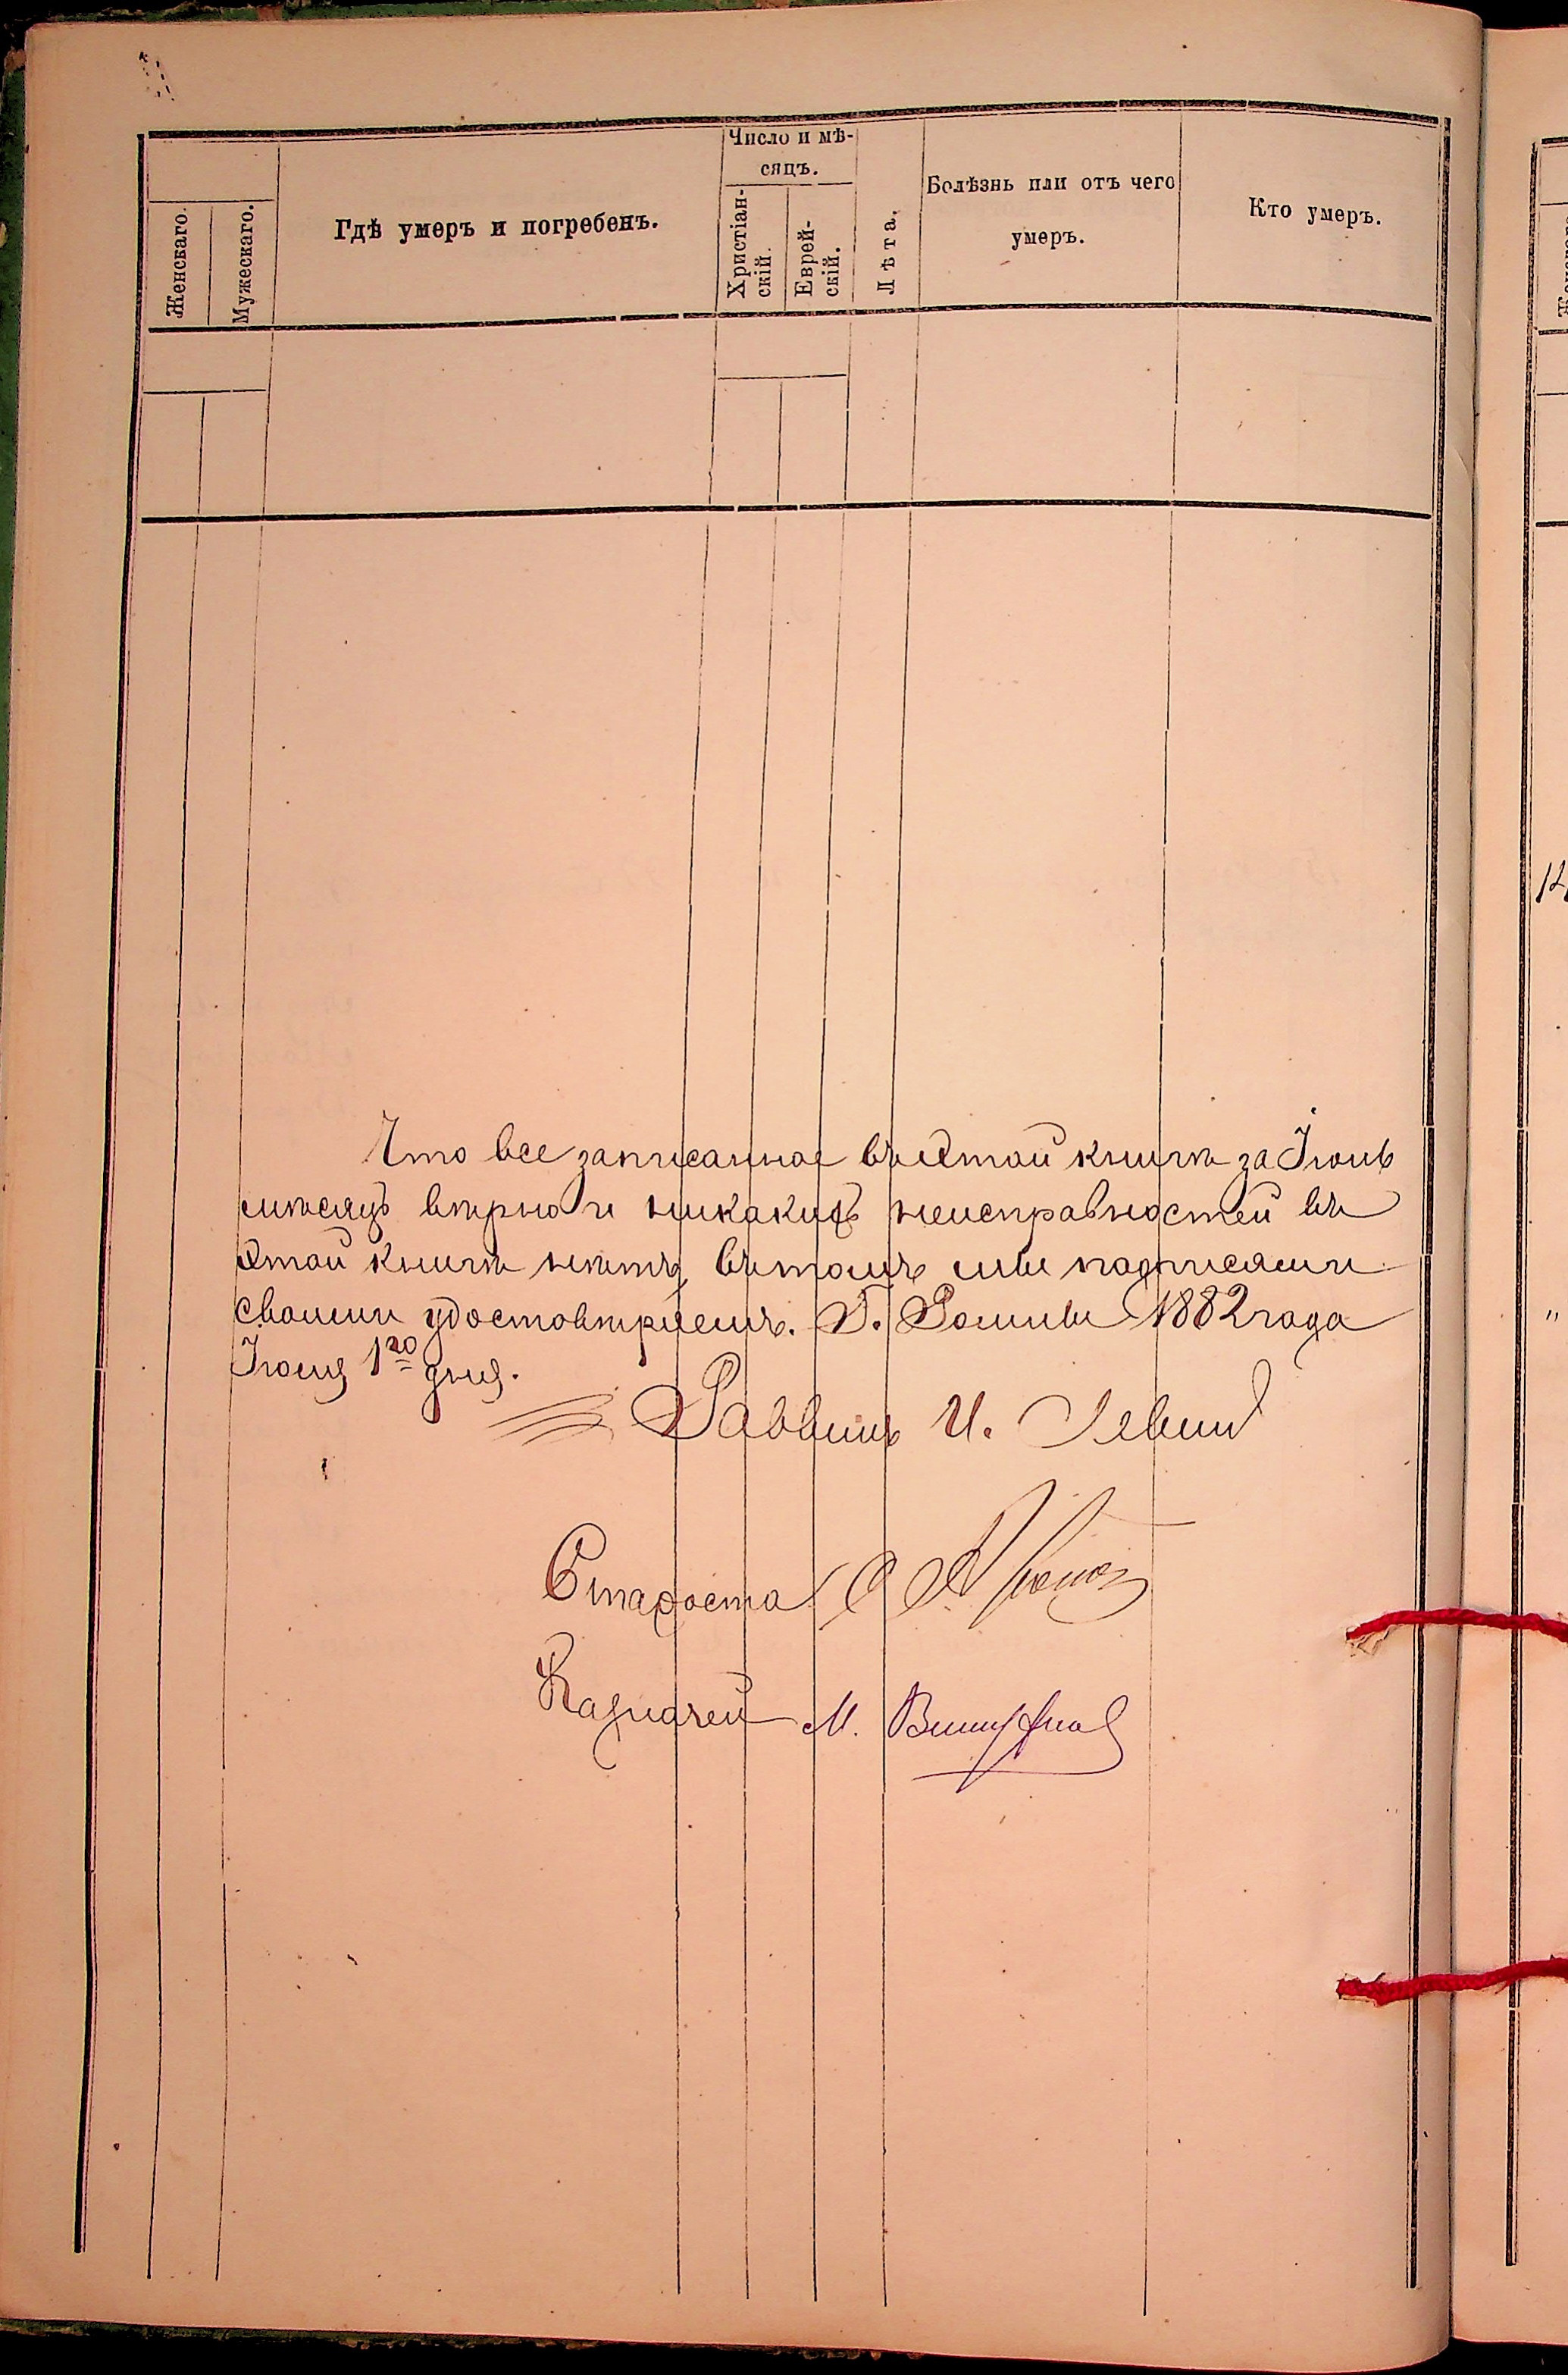 Женскаго.
Мужескаго.
Гдѣ умеръ и погребенъ.
Число и мѣ-
сяцъ.
Христіан-
скій.
Еврей-
скій.
Лѣта.
Болѣзнь или отъ чего
умеръ.
Кто умеръ.
Что все записанное въ этой книгѣ за Іюнь
мѣсяцъ вѣрно и никакихъ неисправностей въ
этой книгѣ нѣтъ, въ томъ мы подписями
своими удостовѣряемъ. Г. Ромны 1882 года
Іюля 1го дня.
Раввинъ И. Левин
Староста
Казначей М.